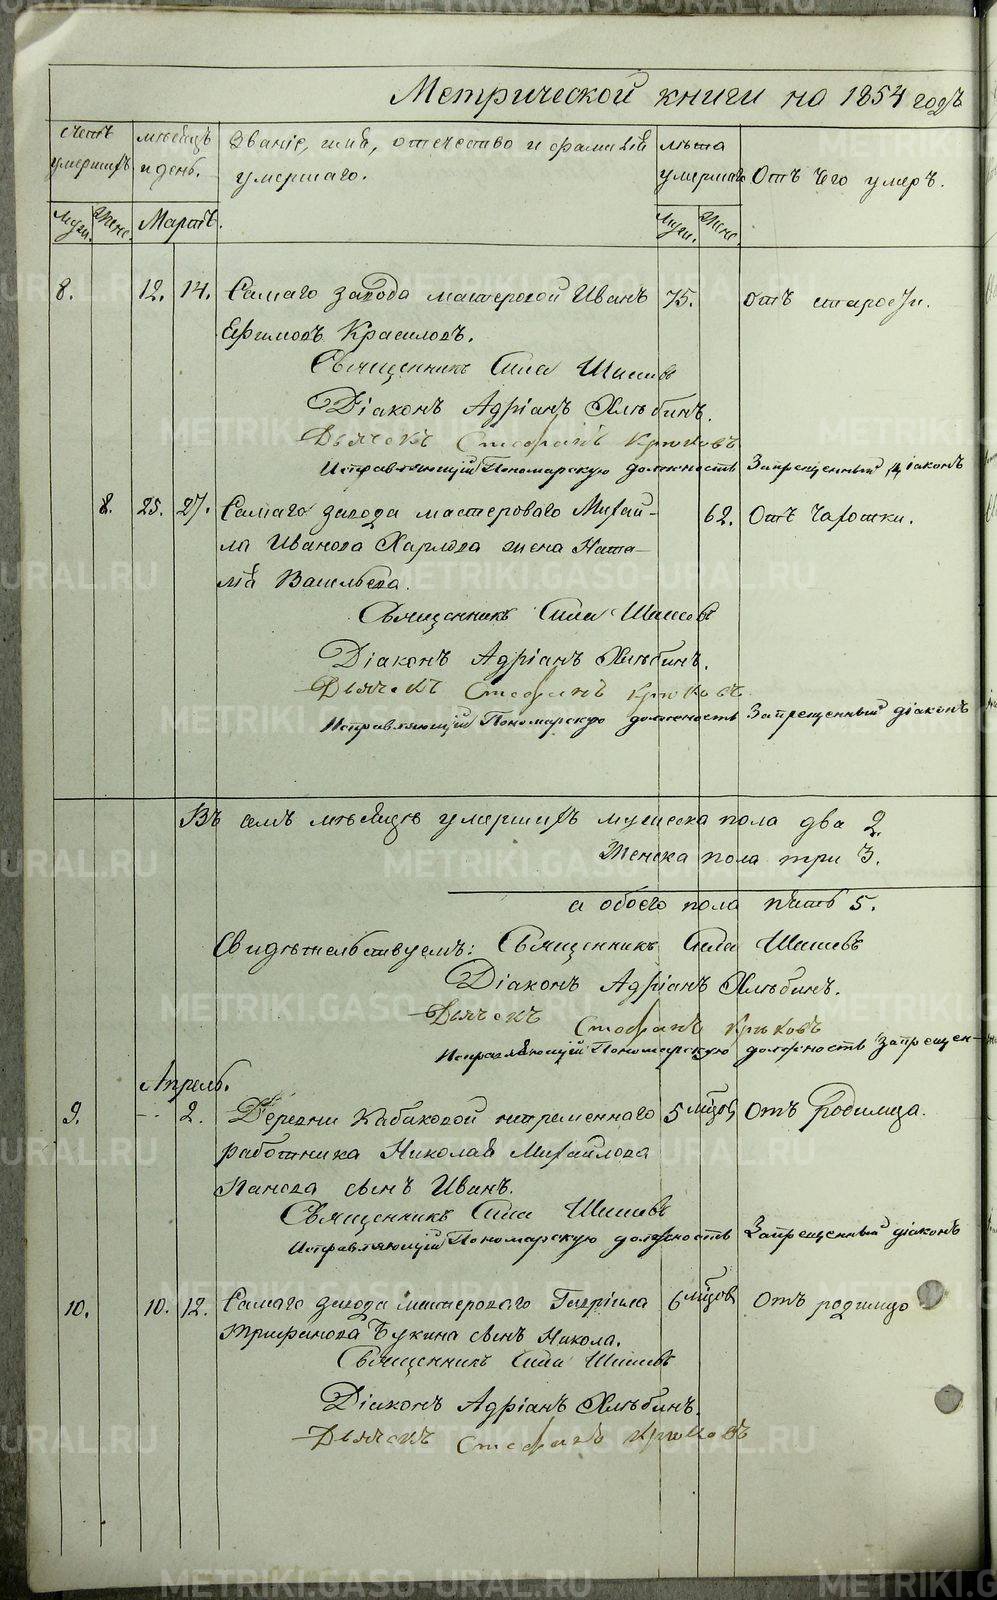 Метрической книги на 1854 годъ
счетъ умершихъ
мѣсяцъ и день.
Званіе, имя, отечество и фамилія умершаго.
лѣта умершаго
Отъ чего умеръ.
Муж. Жен.
Мартъ.
Муж. Жен.
8. 12. 14. Самаго завода мастеровой Иванъ 75. отъ старости.
Ефимовъ Красиловъ.
Священникъ Сила Шишевъ
Діаконъ Адріанъ Хлѣбинъ.
Дьячекъ Стефанъ Крюковъ
Исправляющій Пономарскую должность Запрещенный діаконъ
8. 25. 27. Самаго завода мастероваго Михай- 62. Отъ чахотки.
ла Иванова Харлова жена Ната-
лія Васильева.
Священникъ Сила Шишевъ
Діаконъ Адріанъ Хлѣбинъ.
Дьячекъ Стефанъ Крюковъ
Исправляющій Пономарскую должность Запрещенный діаконъ
Въ семъ мѣсяцѣ умершихъ мужеска пола два 2.
Женска пола три 3.
а обоего пола пять 5.
Свидѣтельствуемъ: Священникъ Сила Шишевъ
Діаконъ Адріанъ Хлѣбинъ.
Дьячекъ Стефанъ Крюковъ
Исправляющій Пономарскую должность Запрещен-
Апрель.
9. -- 2. Деревни Кабаковой непременнаго 5 мѣсяцов Отъ Родимца.
работника Николая Михайлова
Панова сынъ Иванъ.
Священникъ Сила Шишевъ
Исправляющій Пономарскую должность Запрещенный діаконъ
10. 10. 12. Самаго завода мастероваго Гаврила 6 мѣсяцов Отъ родимцо
Трифанова Букина сынъ Никола.
Священникъ Сила Шишевъ
Діаконъ Адріанъ Хлѣбинъ.
Дьячекъ Стефанъ Крюковъ
METRIKI.GASO-URAL.RU